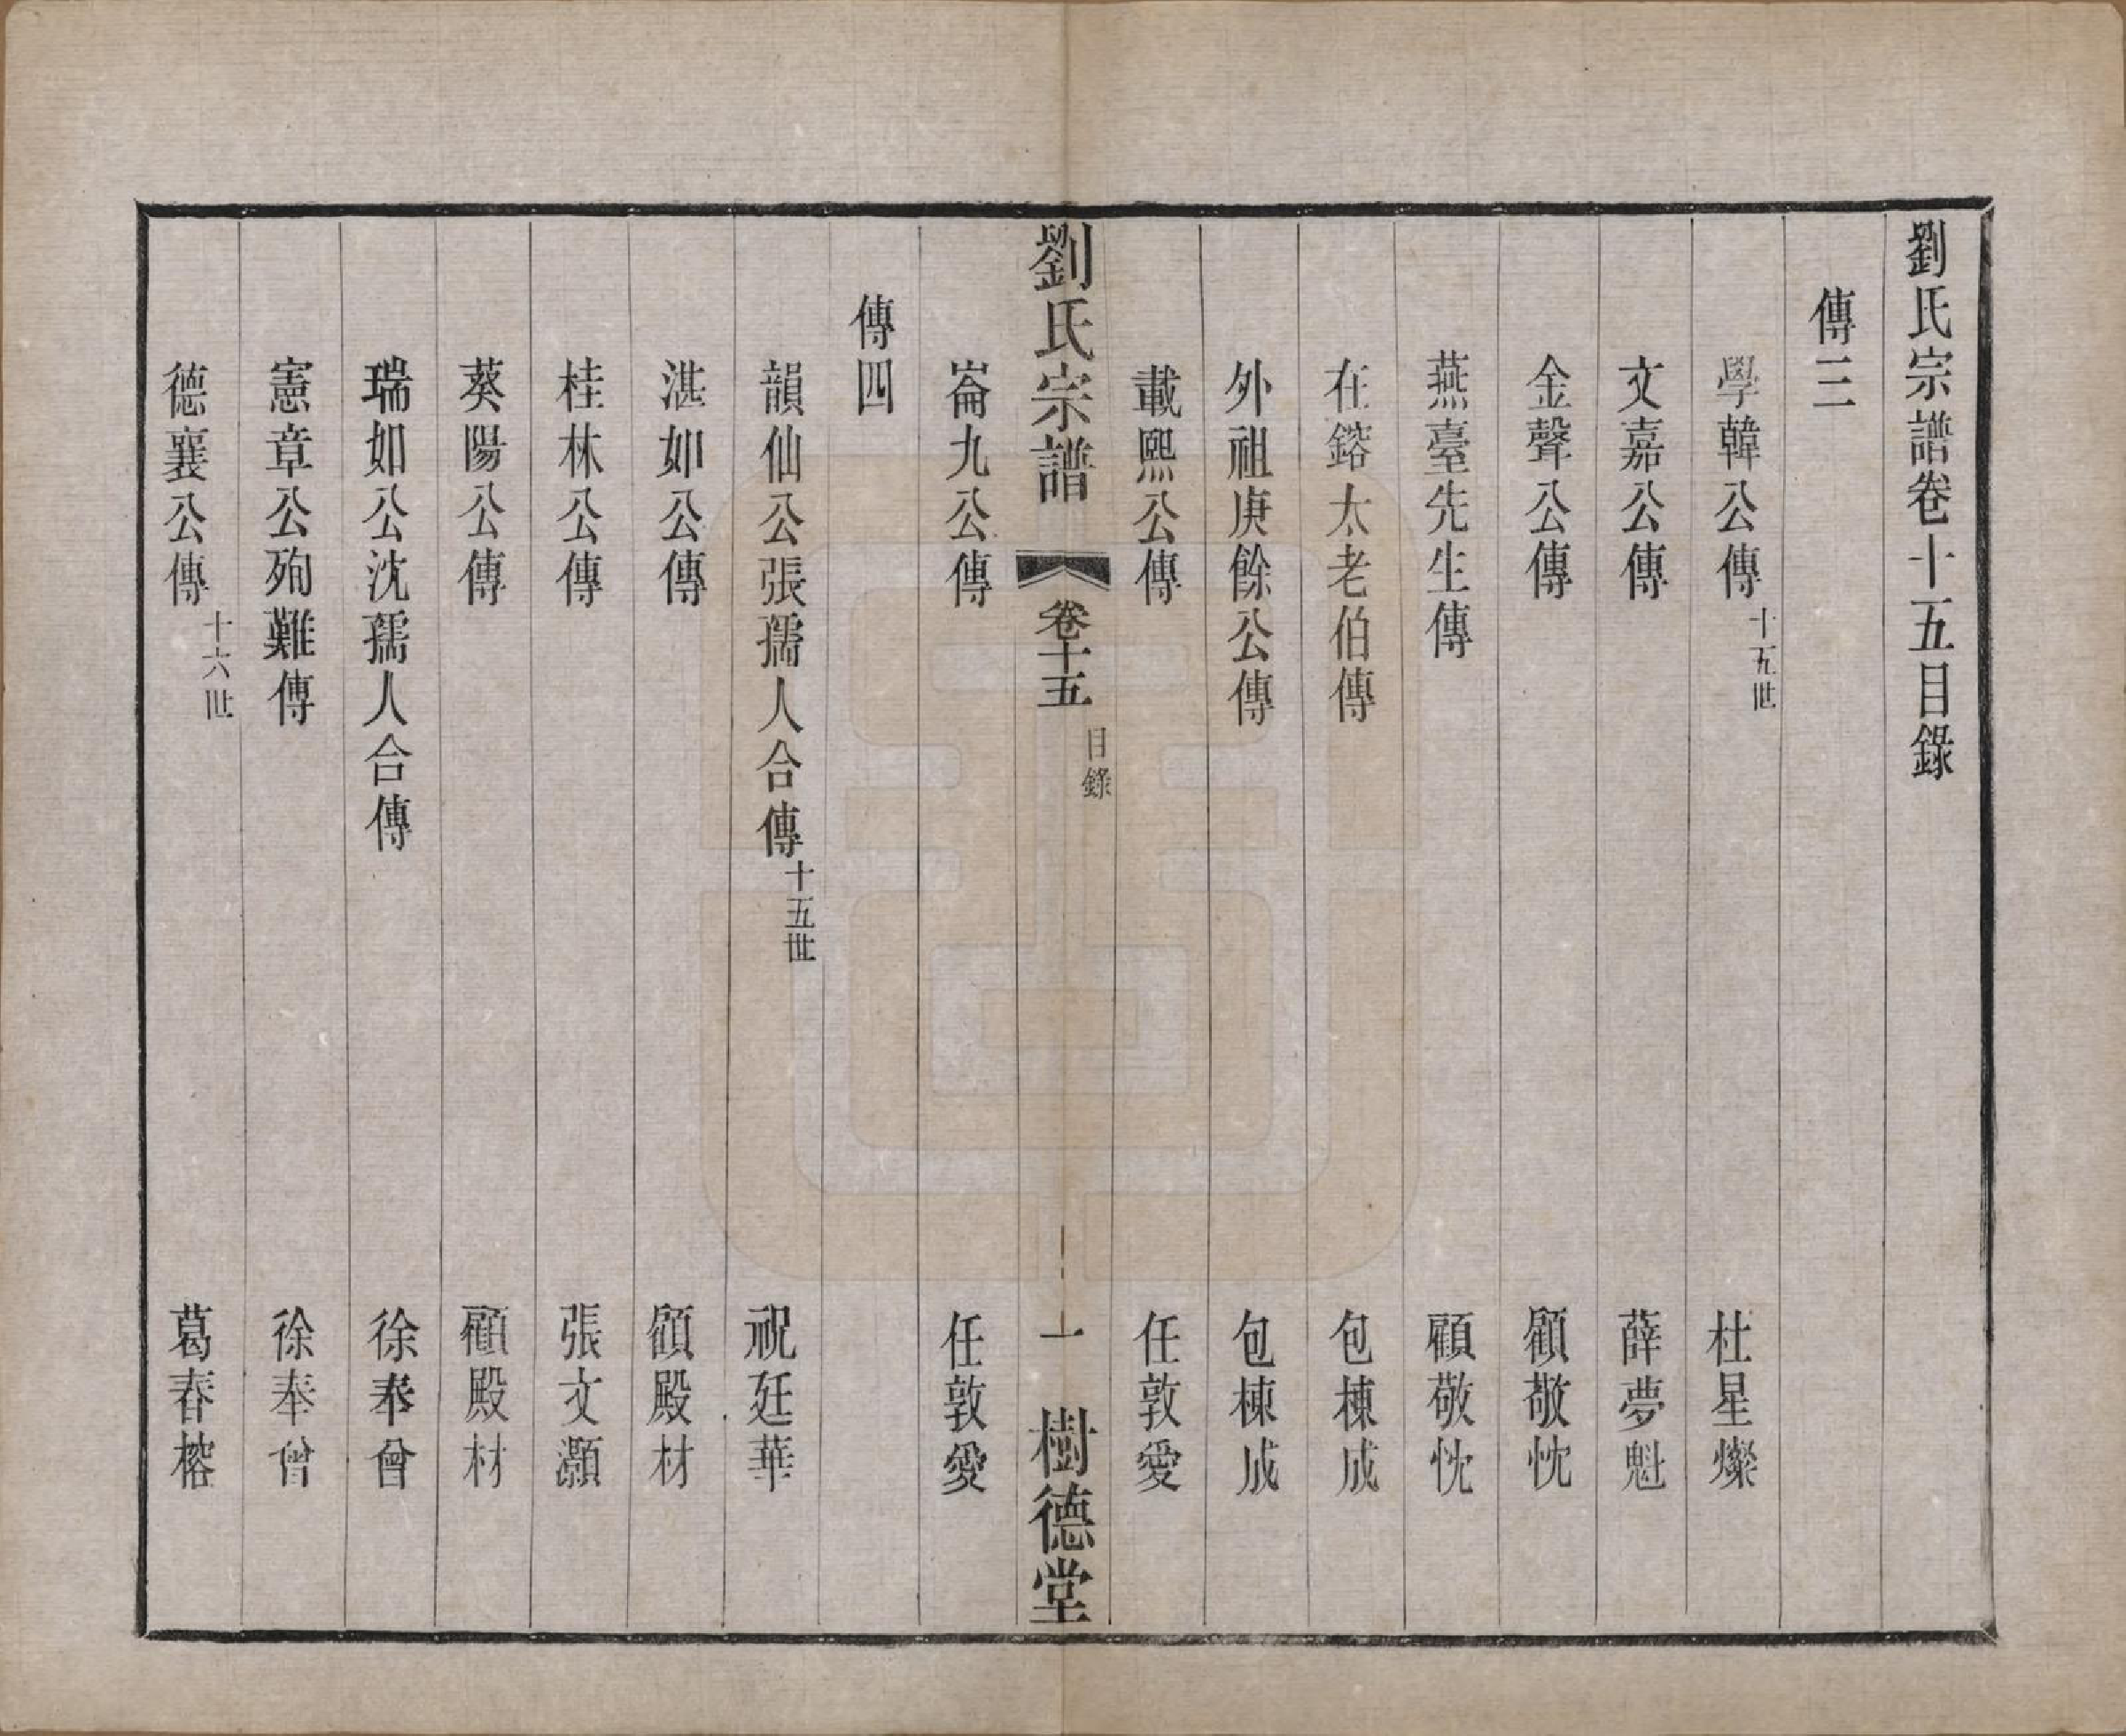 劉氏宗譜卷十五目錄
傳三
學韓公傳十五世 杜星燦
文嘉公傳 薛夢魁
金聲公傳 顧敬忱
燕臺先生傳 顧敬忱
在鎔太老伯傳 包棟成
外祖庚餘公傳 包棟成
載熙公傳 任敦愛
劉氏宗譜 卷十五 目錄 一 樹德堂
崙九公傳 任敦愛
傳四
韻仙公張孺人合傳十五世 祝廷華
湛如公傳 顧殿材
桂林公傳 張文灝
葵陽公傳 顧殿材
瑞如公沈孺人合傳 徐奉曾
憲章公殉難傳 徐奉曾
德襄公傳十六世 葛春榕